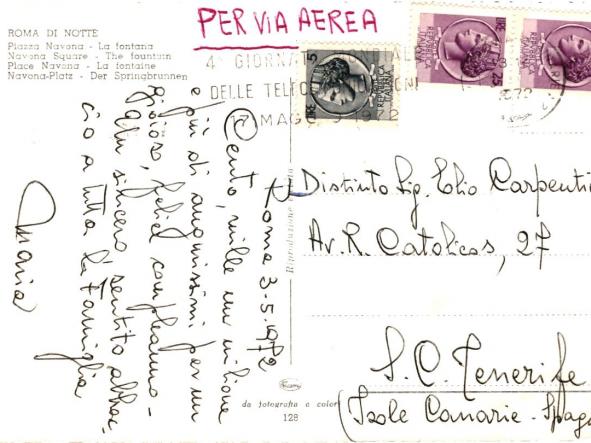 ROMA DI NOTTE
Piazza Navona - La fontana
Navona Square - The fountain
Place Navona - La fontaine
Navona-Platz - Der Springbrunnen
PER VIA AEREA
4ª GIORNATA
DELLE TELECOMUNICAZIONI
17 MAGGIO 1972
LIRE 5
REPUBBLICA ITALIANA
LIRE 25
REPUBBLICA ITALIANA
Roma 3-5-1972
Cento, mille un milione
e più di auguissimi per un
gioioso, felice compleanno -
Un sincero sentito abbrac
cio a tutta la famiglia
Maria
Distinto Sig. Elio Carpenti
Av. R. Catolicos, 27
S. C. Tenerife
(Isole Canarie - Spag
Riproduzione
da fotografia a colori
128